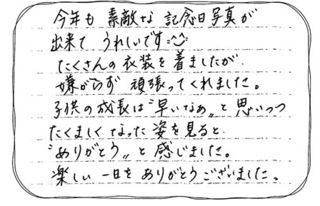 今年も 素敵な 記念日写真が
出来て うれしいです☺
たくさんの衣装を着ましたが
嫌がらず 頑張ってくれました。
子供の成長は"早いなぁ"と思いつつ
たくましくなった姿を見ると
"ありがとう"と感じました。
楽しい一日をありがとうございました。